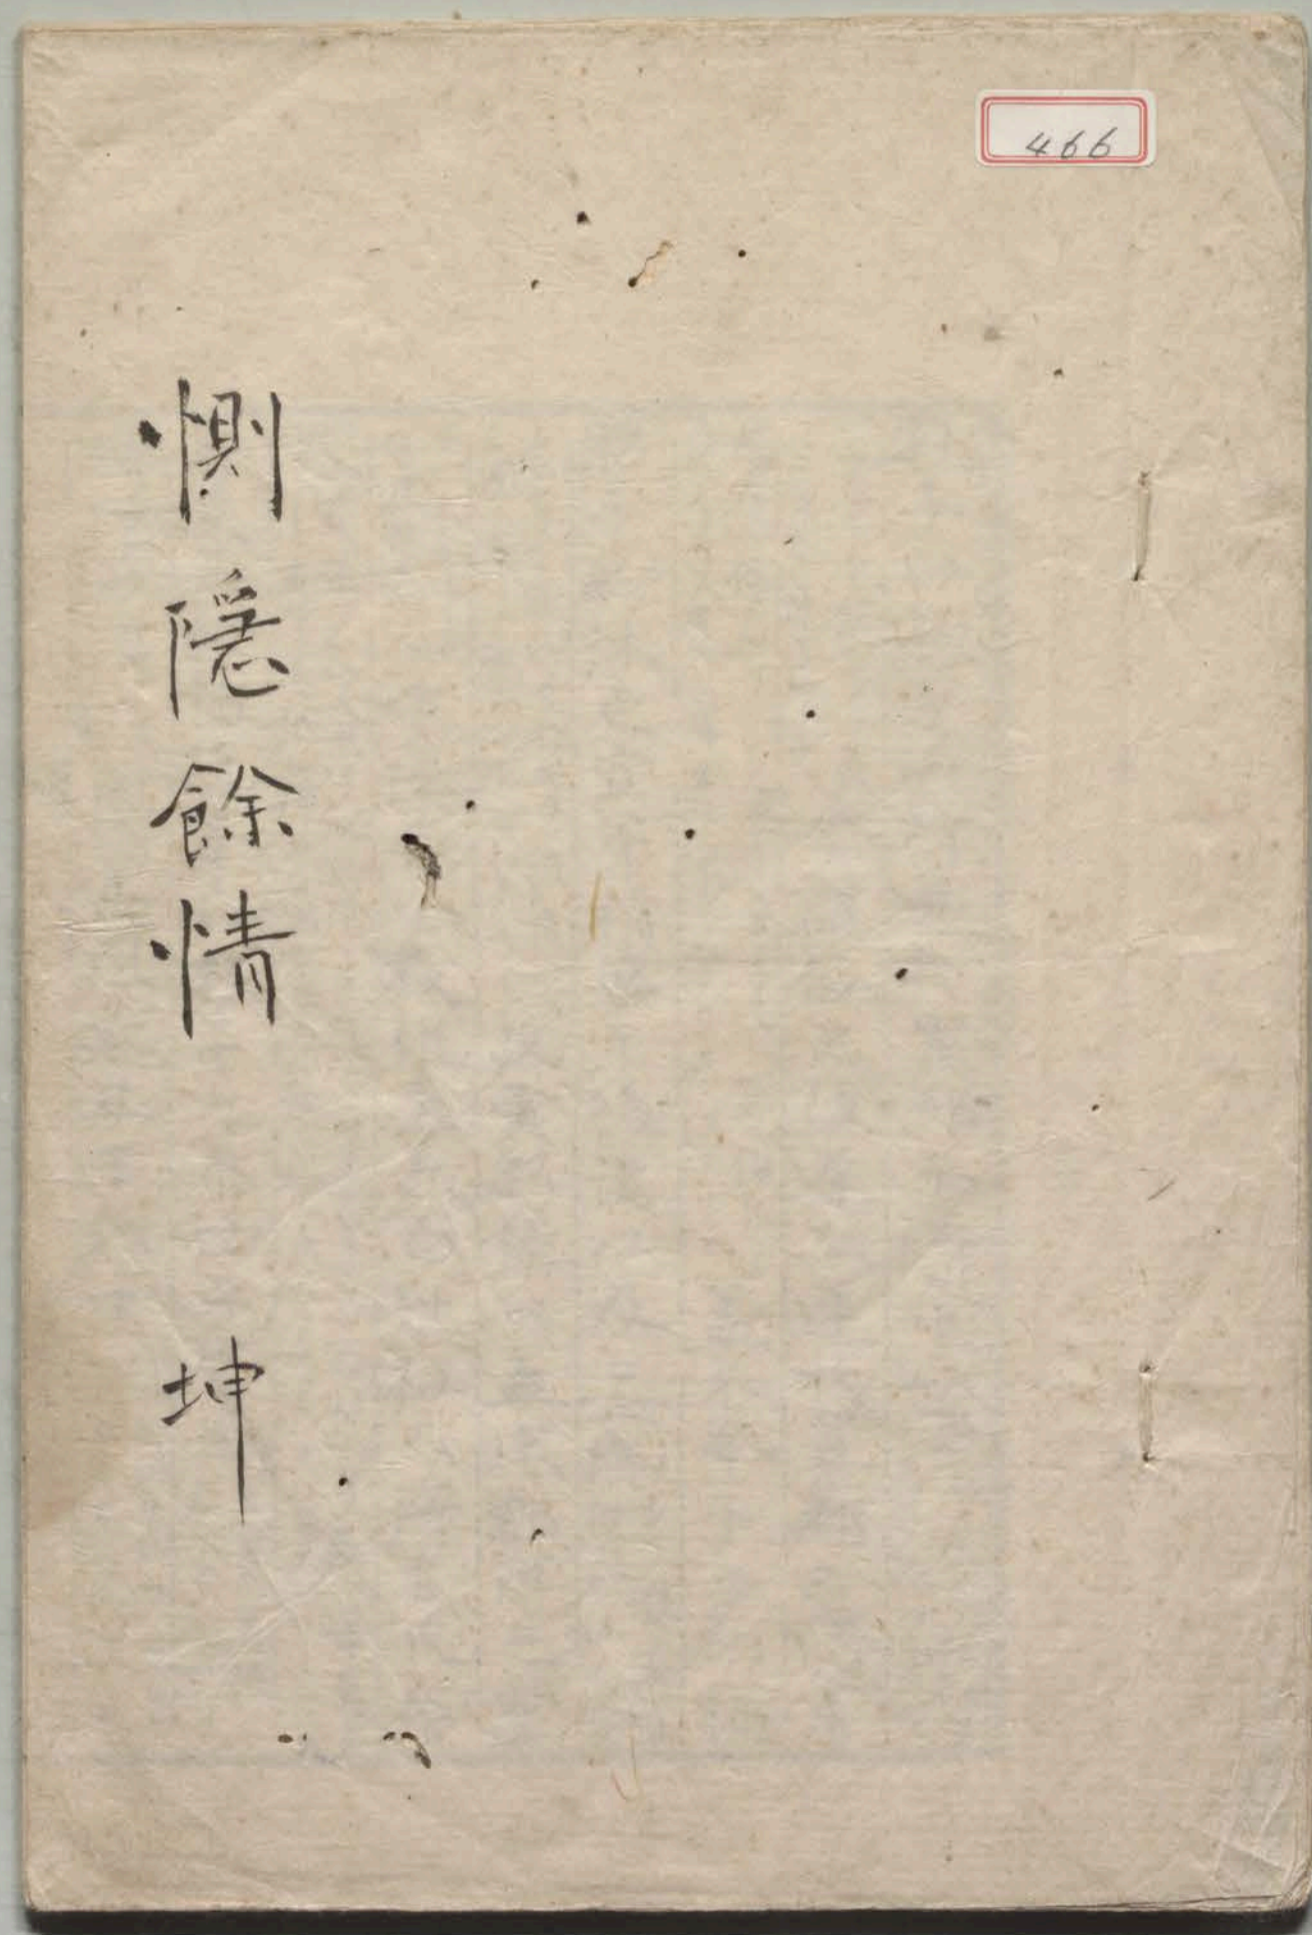 466
惻隠餘情 坤